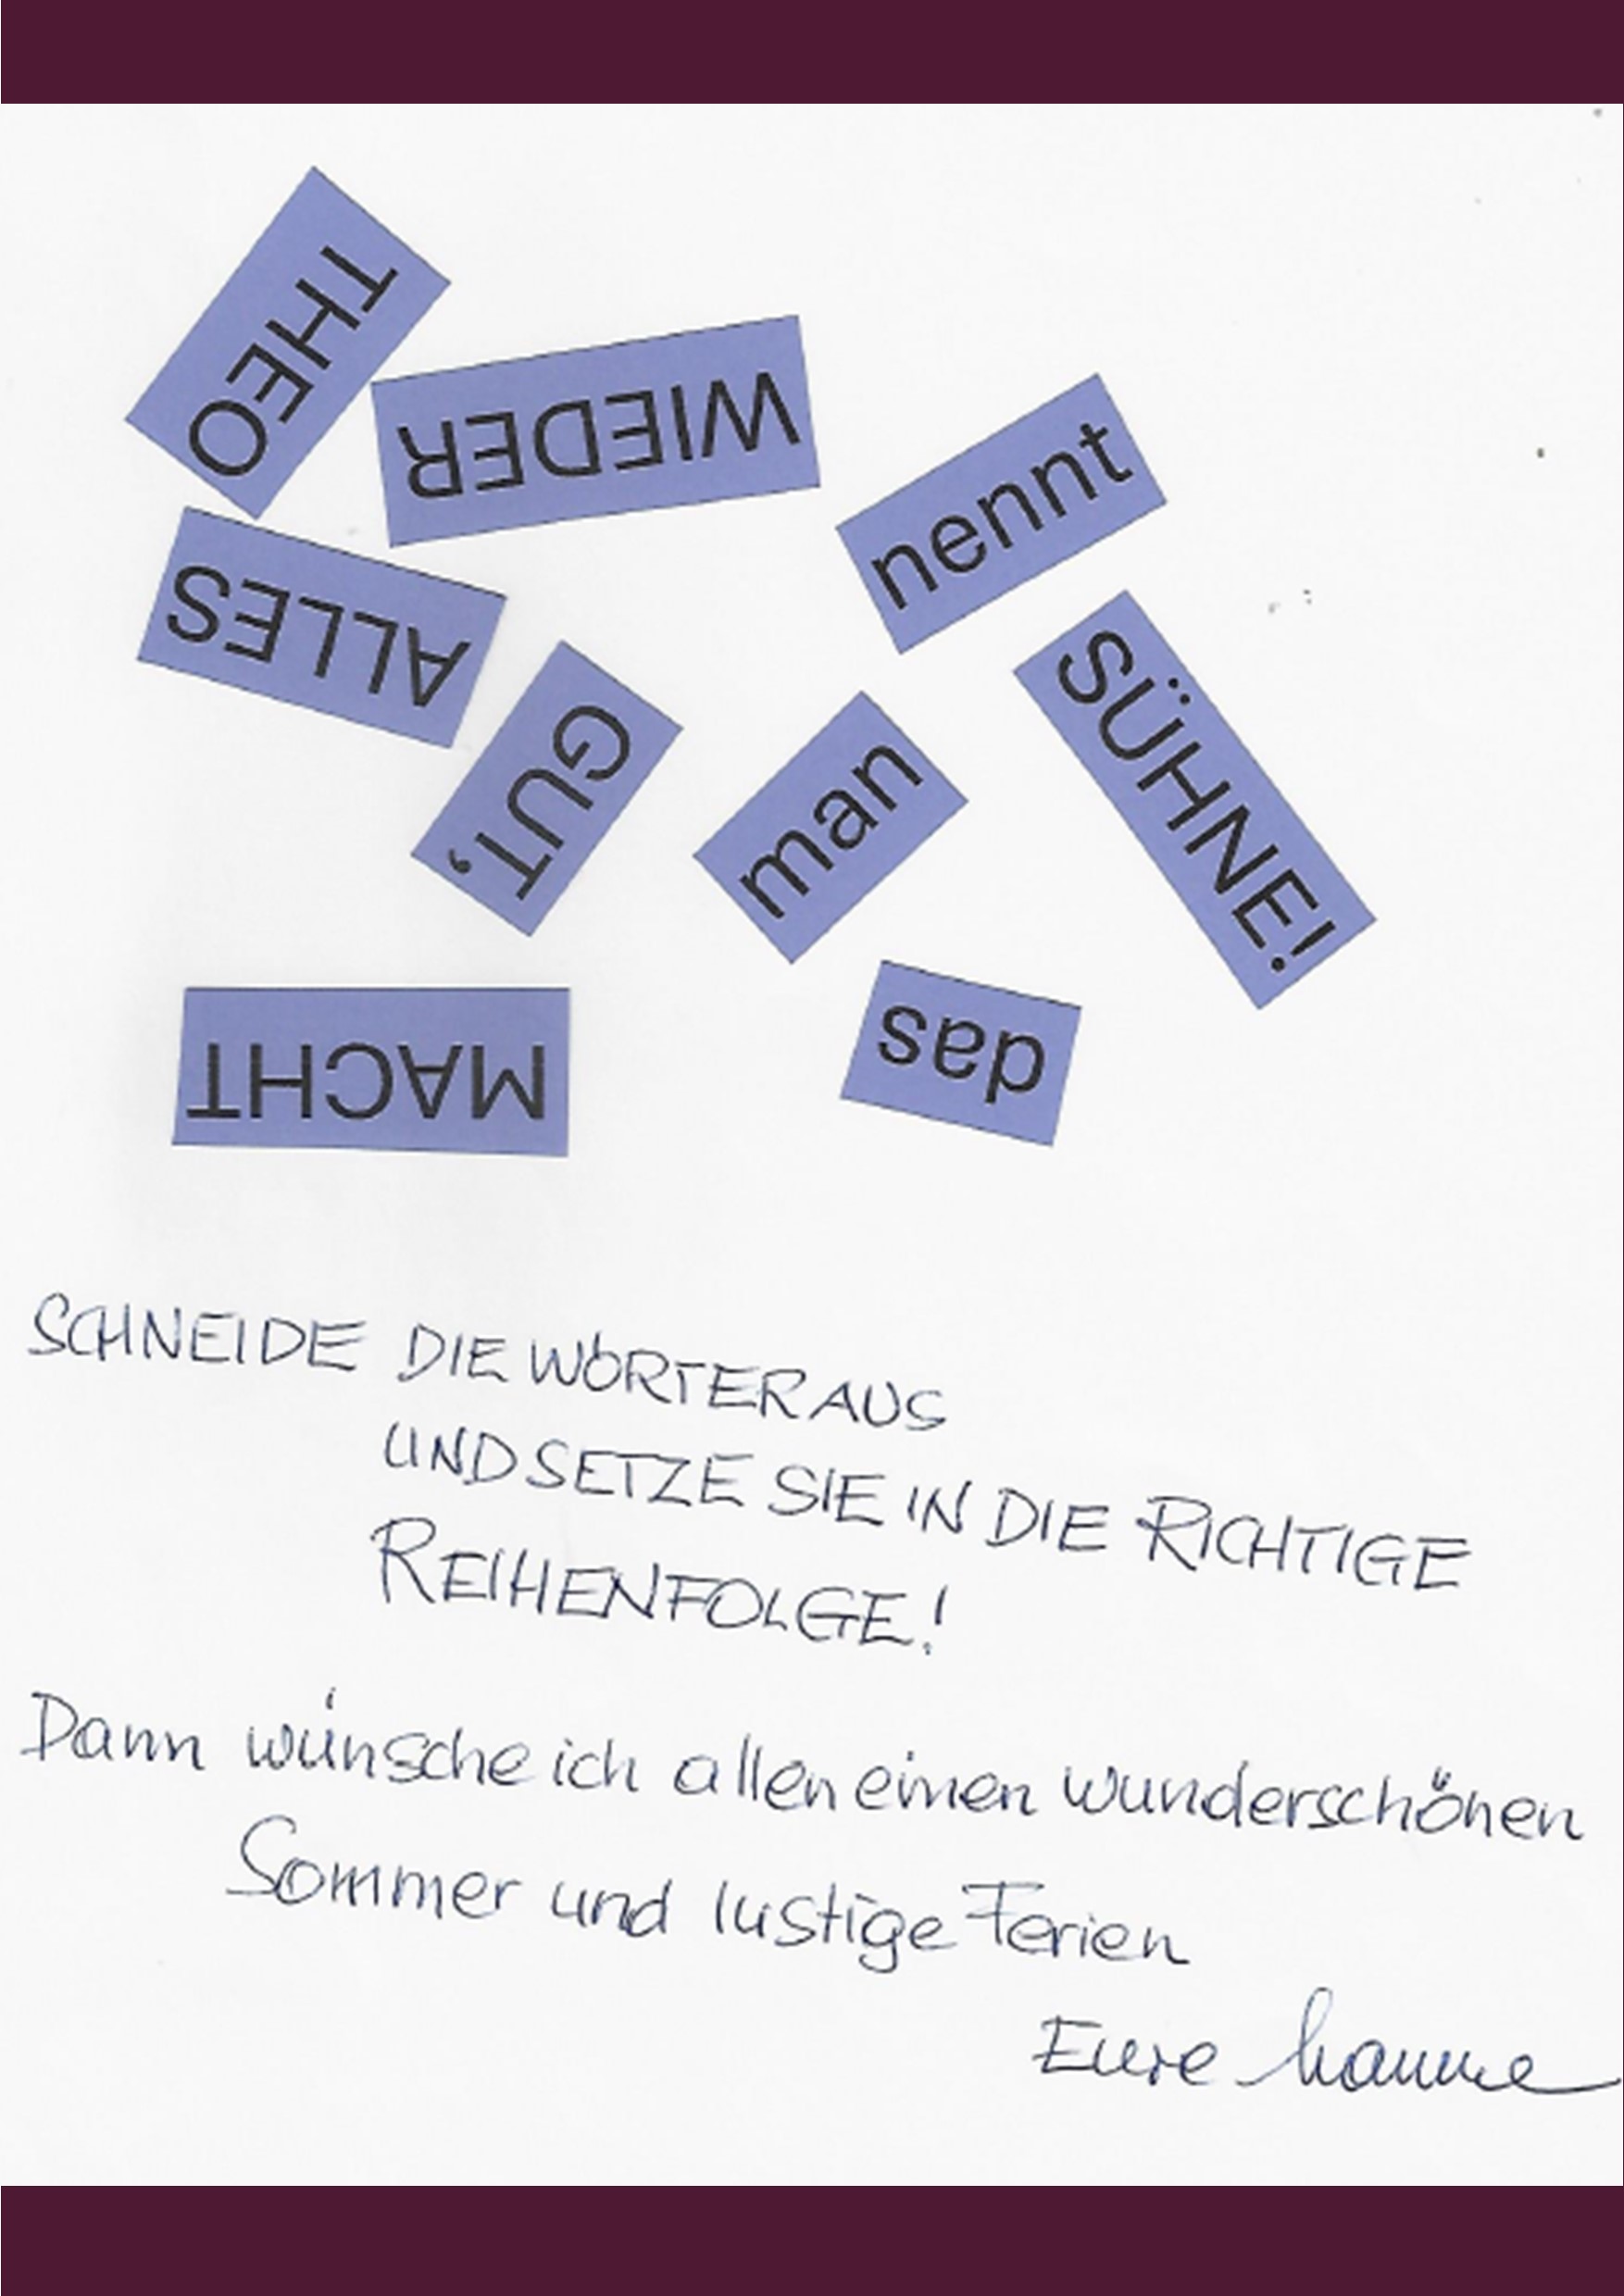 THEO
WIEDER
nennt
ALLES
SÜHNE!
GUT,
man
das
MACHT
SCHNEIDE DIE WÖRTER AUS
UND SETZE SIE IN DIE RICHTIGE
REIHENFOLGE!
Dann wünsche ich allen einen wunderschönen
Sommer und lustige Ferien
Eure